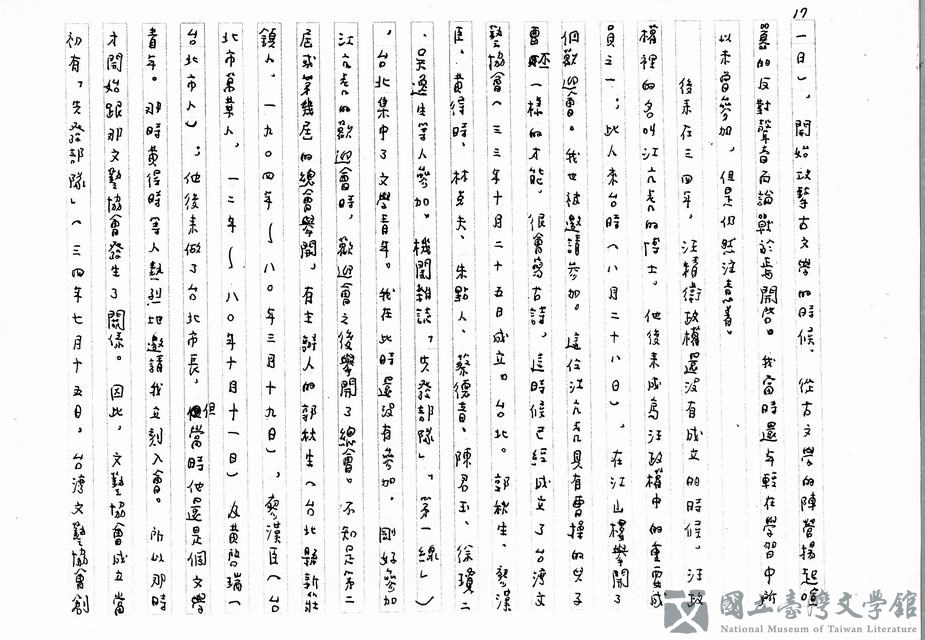 17
一日），開始攻擊古文學的時候，從古文學的陣營揚起喧
囂的反對聲音而論戰於焉開啓。我當時還年輕在學習中所
以未曾參加，但是仍然注意着。
後來在三四年，汪精衛政權還沒有成立的時候，汪政
權裡的名叫江亢虎的博士，他後來成爲汪政權中的重要成
員之一；此人來台時（八月二十八日），在江山樓舉開了
個歡迎會。我也被邀請參加。這位江亢虎具有曹操的兒子
曹丕一樣的才能，很會寫古詩，這時候已經成立了台灣文
藝協會（三三年十月二十五日成立。台北。郭秋生、廖漢
臣、黃得時、林克夫、朱點人、蔡德音、陳君玉、徐瓊二
、吳逸生等人參加。機關雜誌，「先發部隊」、「第一線」）
，台北集中了文學青年。我在此時還沒有參加。剛好參加
江亢虎的歡迎會時，歡迎會之後舉開了總會。不知是第二
屆或第幾屆的總會舉開，有主辦人的郭秋生（台北縣新莊
鎮人，一九〇四年〜八〇年三月十九日），廖漢臣（台
北市萬華人，一二年〜八〇年十月十一日）及黃啓瑞（
台北市人）；他後來做了台北市長，但當時他還是個文學
青年。那時黃得時等人熱烈地邀請我立刻入會。所以那時
才開始跟那文藝協會發生了關係。因此，文藝協會成立當
初有「先發部隊」（三四年七月十五日，台灣文藝協會創
國立臺灣文學館
National Museum of Taiwan Literature